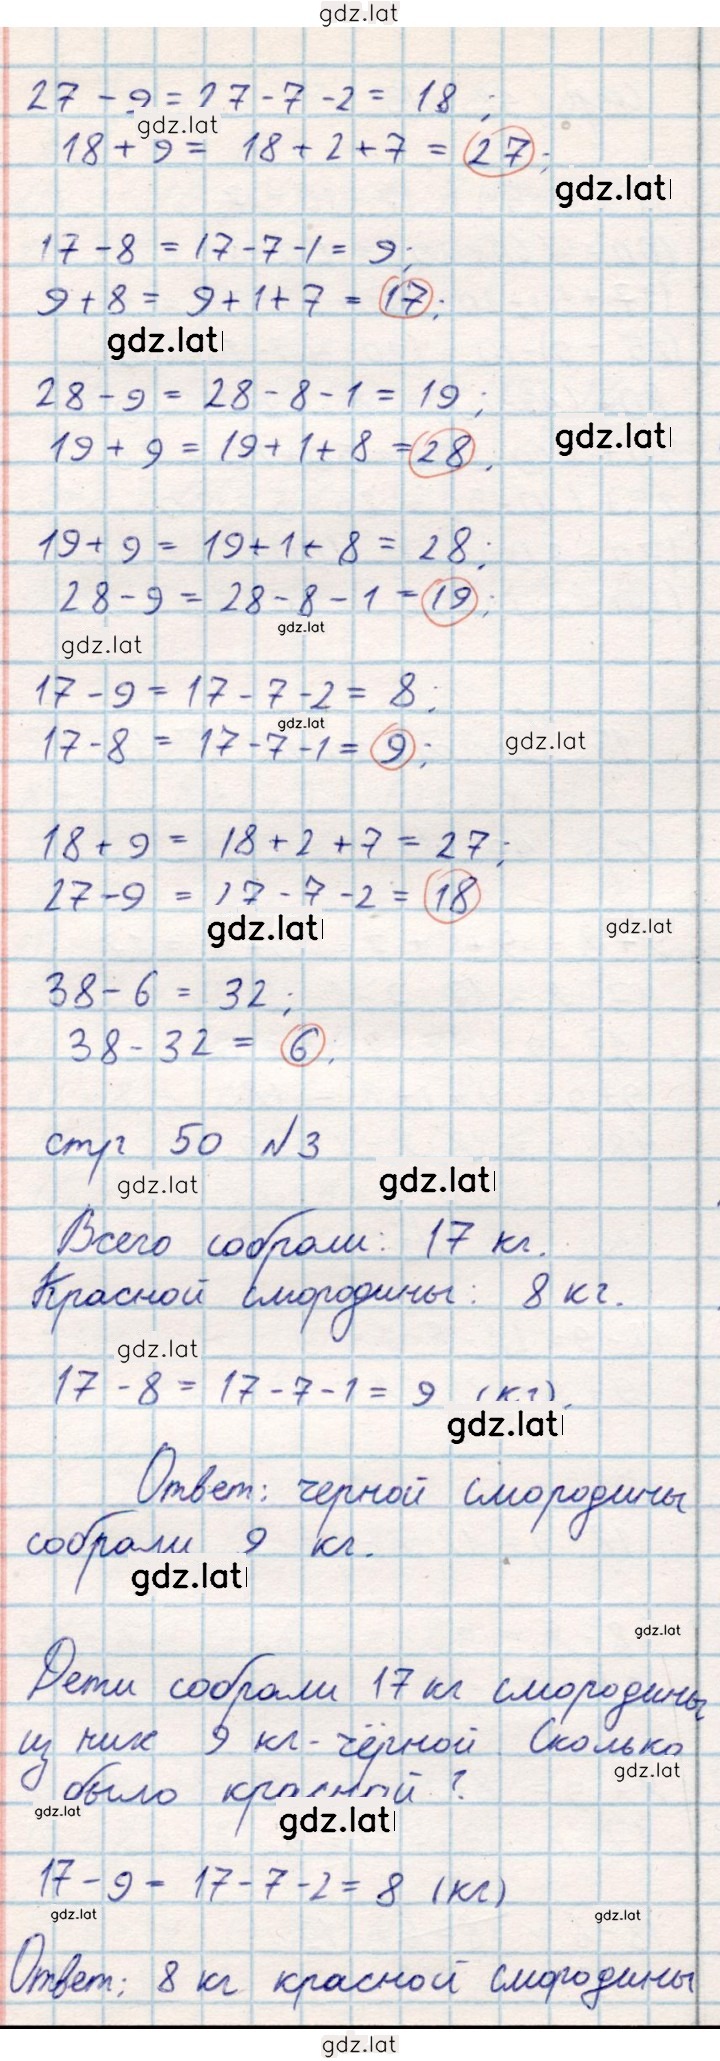 gdz.lat
27 - 9 = 27 - 7 - 2 = 18 ;
gdz.lat
18 + 9 = 18 + 2 + 7 = 27 ;
gdz.lat
17 - 8 = 17 - 7 - 1 = 9 ;
9 + 8 = 9 + 1 + 7 = 17 ;
gdz.lat
28 - 9 = 28 - 8 - 1 = 19 ;
gdz.lat
19 + 9 = 19 + 1 + 8 = 28 .
19 + 9 = 19 + 1 + 8 = 28 ;
28 - 9 = 28 - 8 - 1 = 19 ;
gdz.lat
gdz.lat
17 - 9 = 17 - 7 - 2 = 8 ;
gdz.lat
17 - 8 = 17 - 7 - 1 = 9 ;
gdz.lat
18 + 9 = 18 + 2 + 7 = 27 ;
27 - 9 = 27 - 7 - 2 = 18
gdz.lat
gdz.lat
38 - 6 = 32 ;
38 - 32 = 6 .
стр 50 №3
gdz.lat
gdz.lat
Всего собрали: 17 кг.
Красной смородины: 8 кг.
gdz.lat
17 - 8 = 17 - 7 - 1 = 9 (кг).
gdz.lat
Ответ: черной смородины
собрали 9 кг.
gdz.lat
gdz.lat
Дети собрали 17 кг смородины
из них 9 кг - чёрной. Сколько
gdz.lat
было красной ?
gdz.lat
gdz.lat
17 - 9 = 17 - 7 - 2 = 8 (кг)
gdz.lat
gdz.lat
Ответ: 8 кг красной смородины
gdz.lat